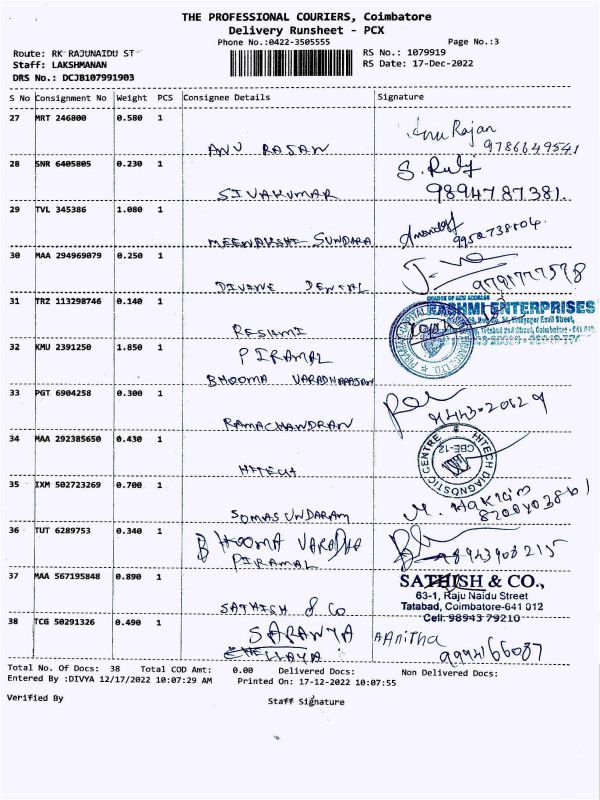 THE PROFESSIONAL COURIERS, Coimbatore
Delivery Runsheet - PCX
Phone No.:0422-3505555
Page No.:3
Route: RK RAJUNAIDU ST
RS No.: 1079919
Staff: LAKSHMANAN
RS Date: 17-Dec-2022
DRS No.: DCJB107991903
S No Consignment No Weight PCS Consignee Details Signature
27 MRT 246800 0.580 1
ANU RAJAN
Anu Rajan
9786649541
28 SNR 6405805 0.230 1
SIVAKUMAR
9894787381.
29 TVL 345386 1.080 1
MEENAKSHI SUNDARA
30 MAA 294969079 0.250 1
DIVANE DENTAL
9791777578
31 TRZ 113298746 0.140 1
RESHMI
CHANGE OF NEW ADDRESS
RASHMI ENTERPRISES
32 KMU 2391250 1.850 1
PIRAMAL
BHOOMA VARADHARAJAN
33 PGT 6904258 0.300 1
RAMACHANDRAN
9443-20629
34 MAA 292385650 0.430 1
HITECH
HITECH DIAGNOSTIC CENTRE
CBE-12
35 IXM 502723269 0.700 1
SOMASUNDARAM
M. Hakkim
36 TUT 6289753 0.340 1
BHOOMA VARADHA
PIRAMAL
37 MAA 567195848 0.890 1
SATHISH & CO
SATHISH & CO.,
63-1, Raju Naidu Street
Tatabad, Coimbatore-641 012
Cell: 98943 79210
38 TCG 50291326 0.490 1
SARANYA
CHELLAYA
AAnitha
9994166087
Total No. Of Docs: 38 Total COD Amt: 0.00 Delivered Docs: Non Delivered Docs:
Entered By :DIVYA 12/17/2022 10:07:29 AM Printed On: 17-12-2022 10:07:55
Verified By
Staff Signature